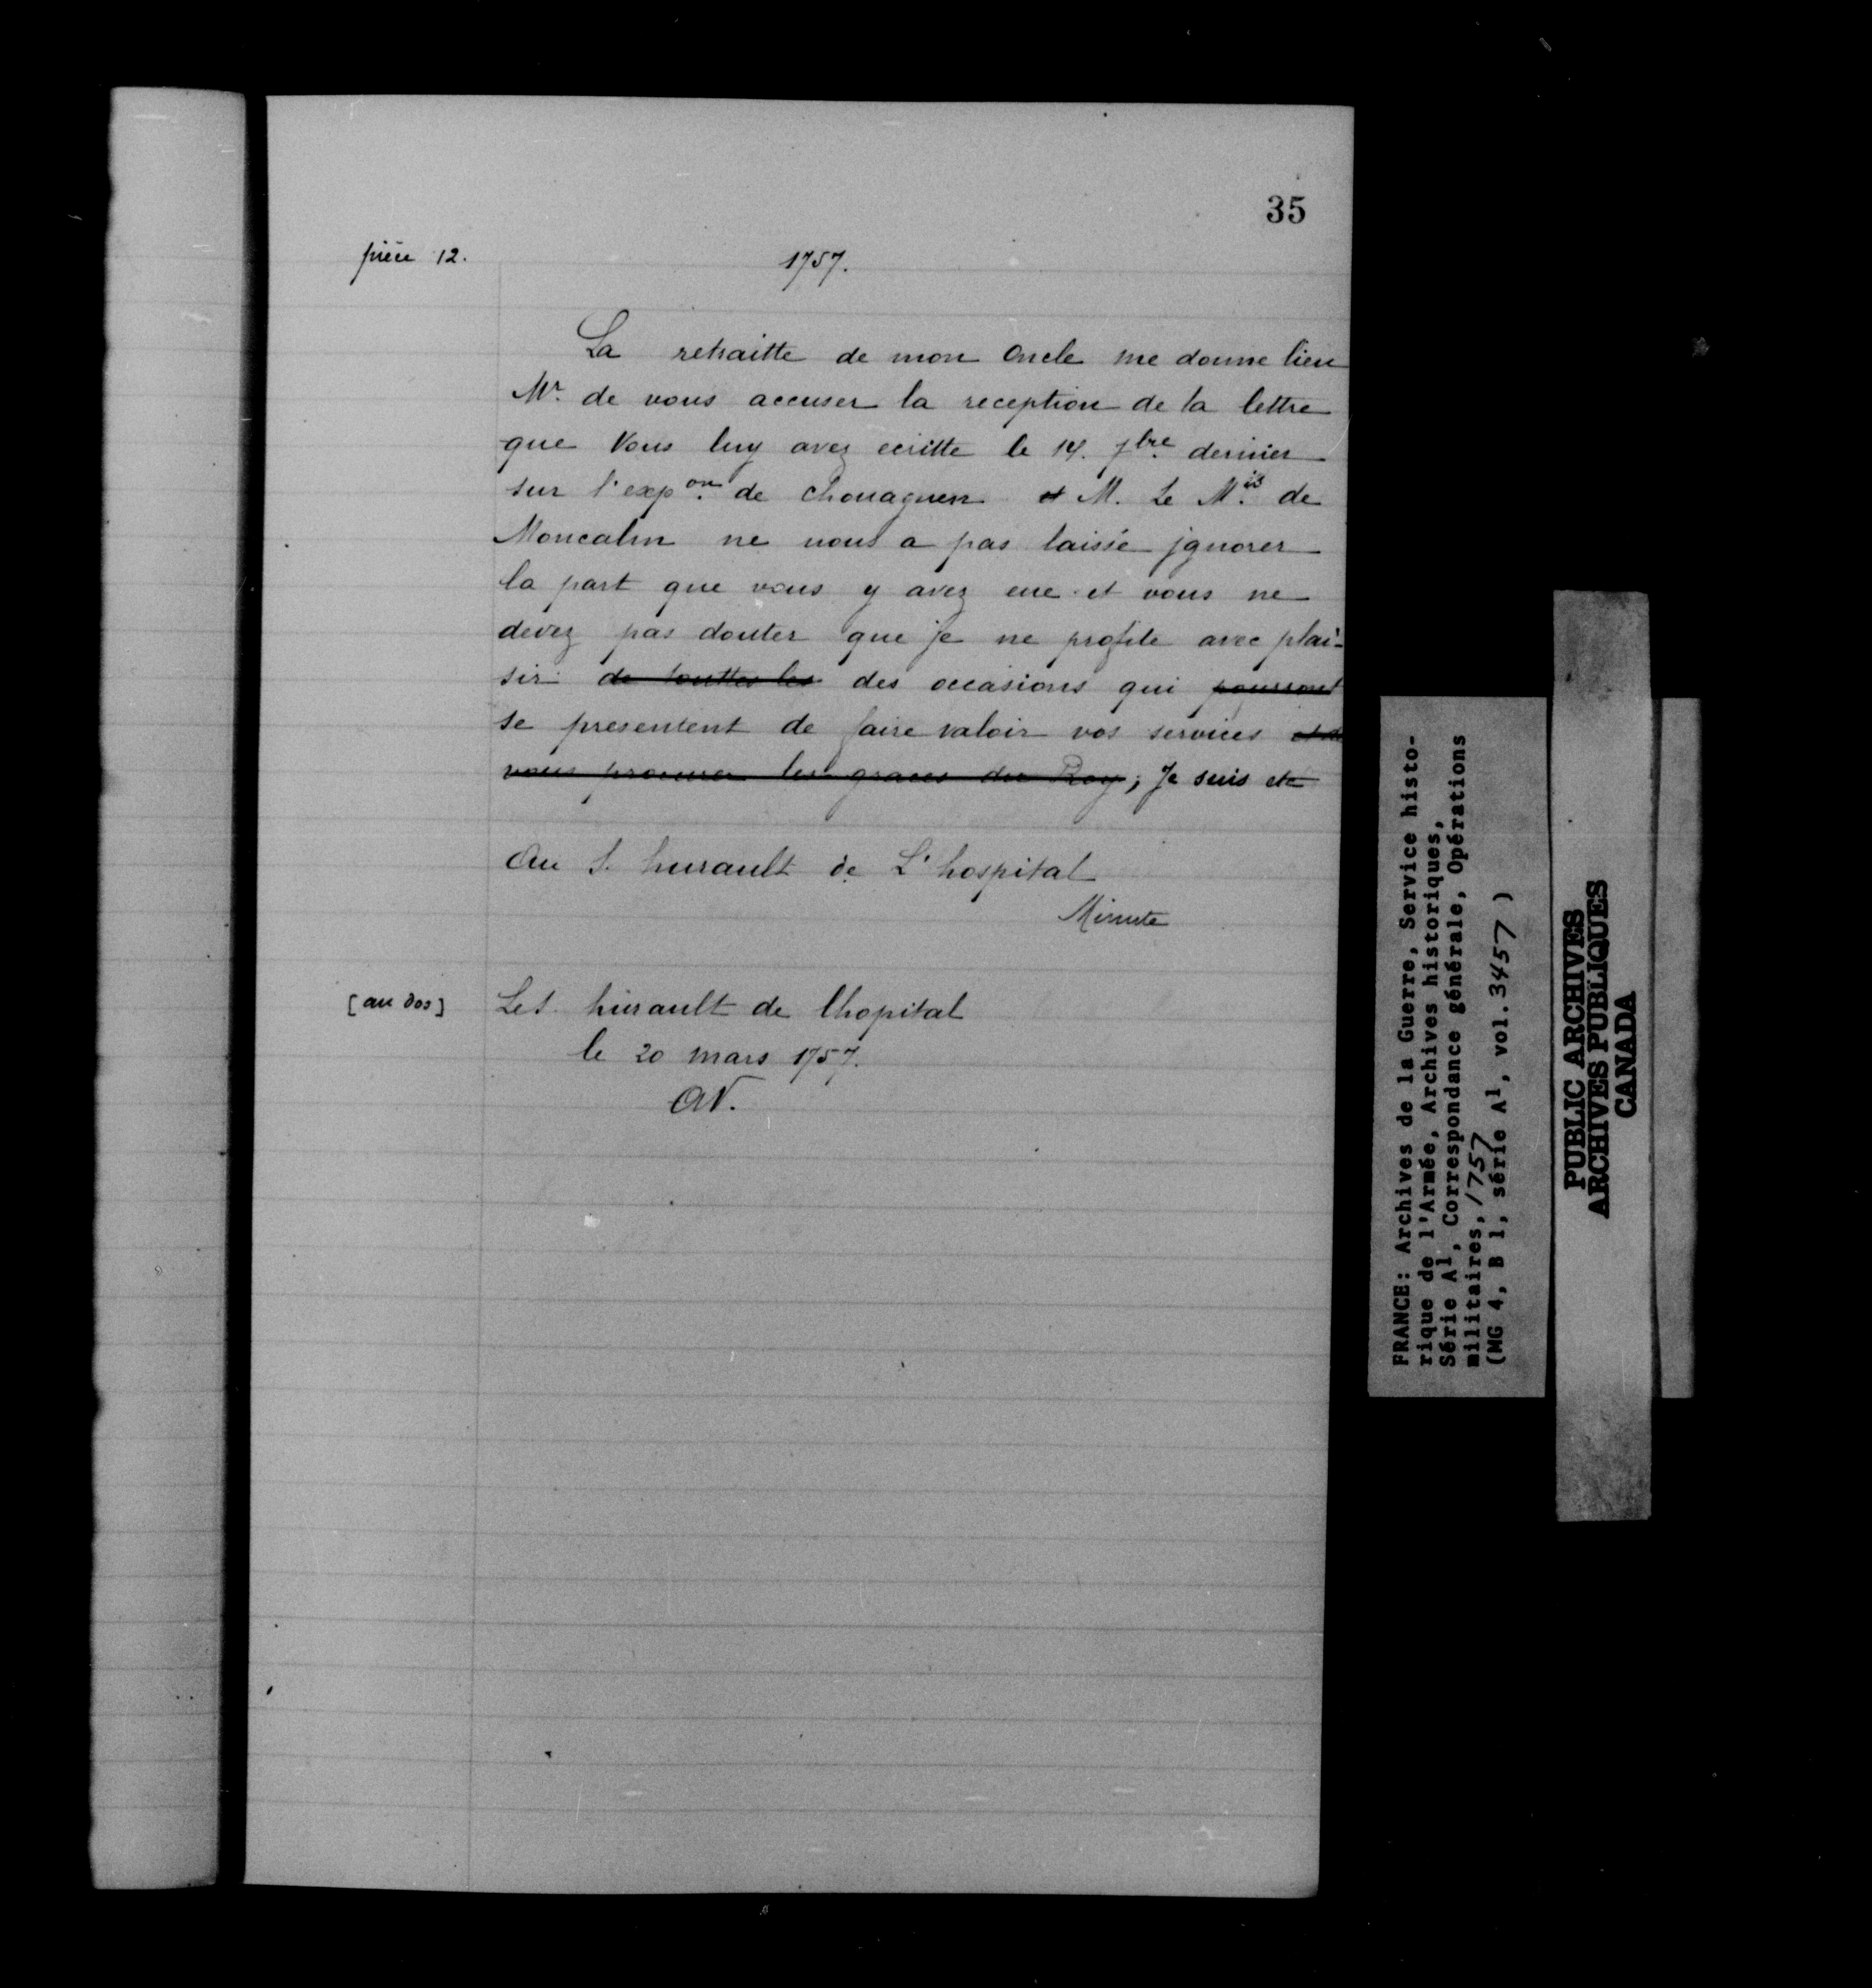 35
pièce 12.
1757.
La retraitte de mon oncle me donne lieu
Mr. de vous accuser la reception de la lettre
que Vous luy avez ecritte le 14. 7bre. dernier
sur l'expon. de chouaguen et M. Le Mis. de
Moncalm ne nous a pas laissé jgnorer
la part que vous y avez eue et vous ne
devez pas douter que je ne profite avec plai-
sir de touttes les des occasions qui pourront
se presentent de faire valoir vos services et de
vous procurer les graces du Roy; Je suis etc
Au S. hurault de L'hospital
Minute
[au dos]
Le S. hurault de lhopital
le 20 mars 1757.
FRANCE: Archives de la Guerre, Service histo-
rique de l'Armée, Archives historiques,
Série A1, Correspondance générale, Opérations
militaires, 1757
(MG 4, B 1, série A1, vol. 3457 )
PUBLIC ARCHIVES
ARCHIVES PUBLIQUES
CANADA